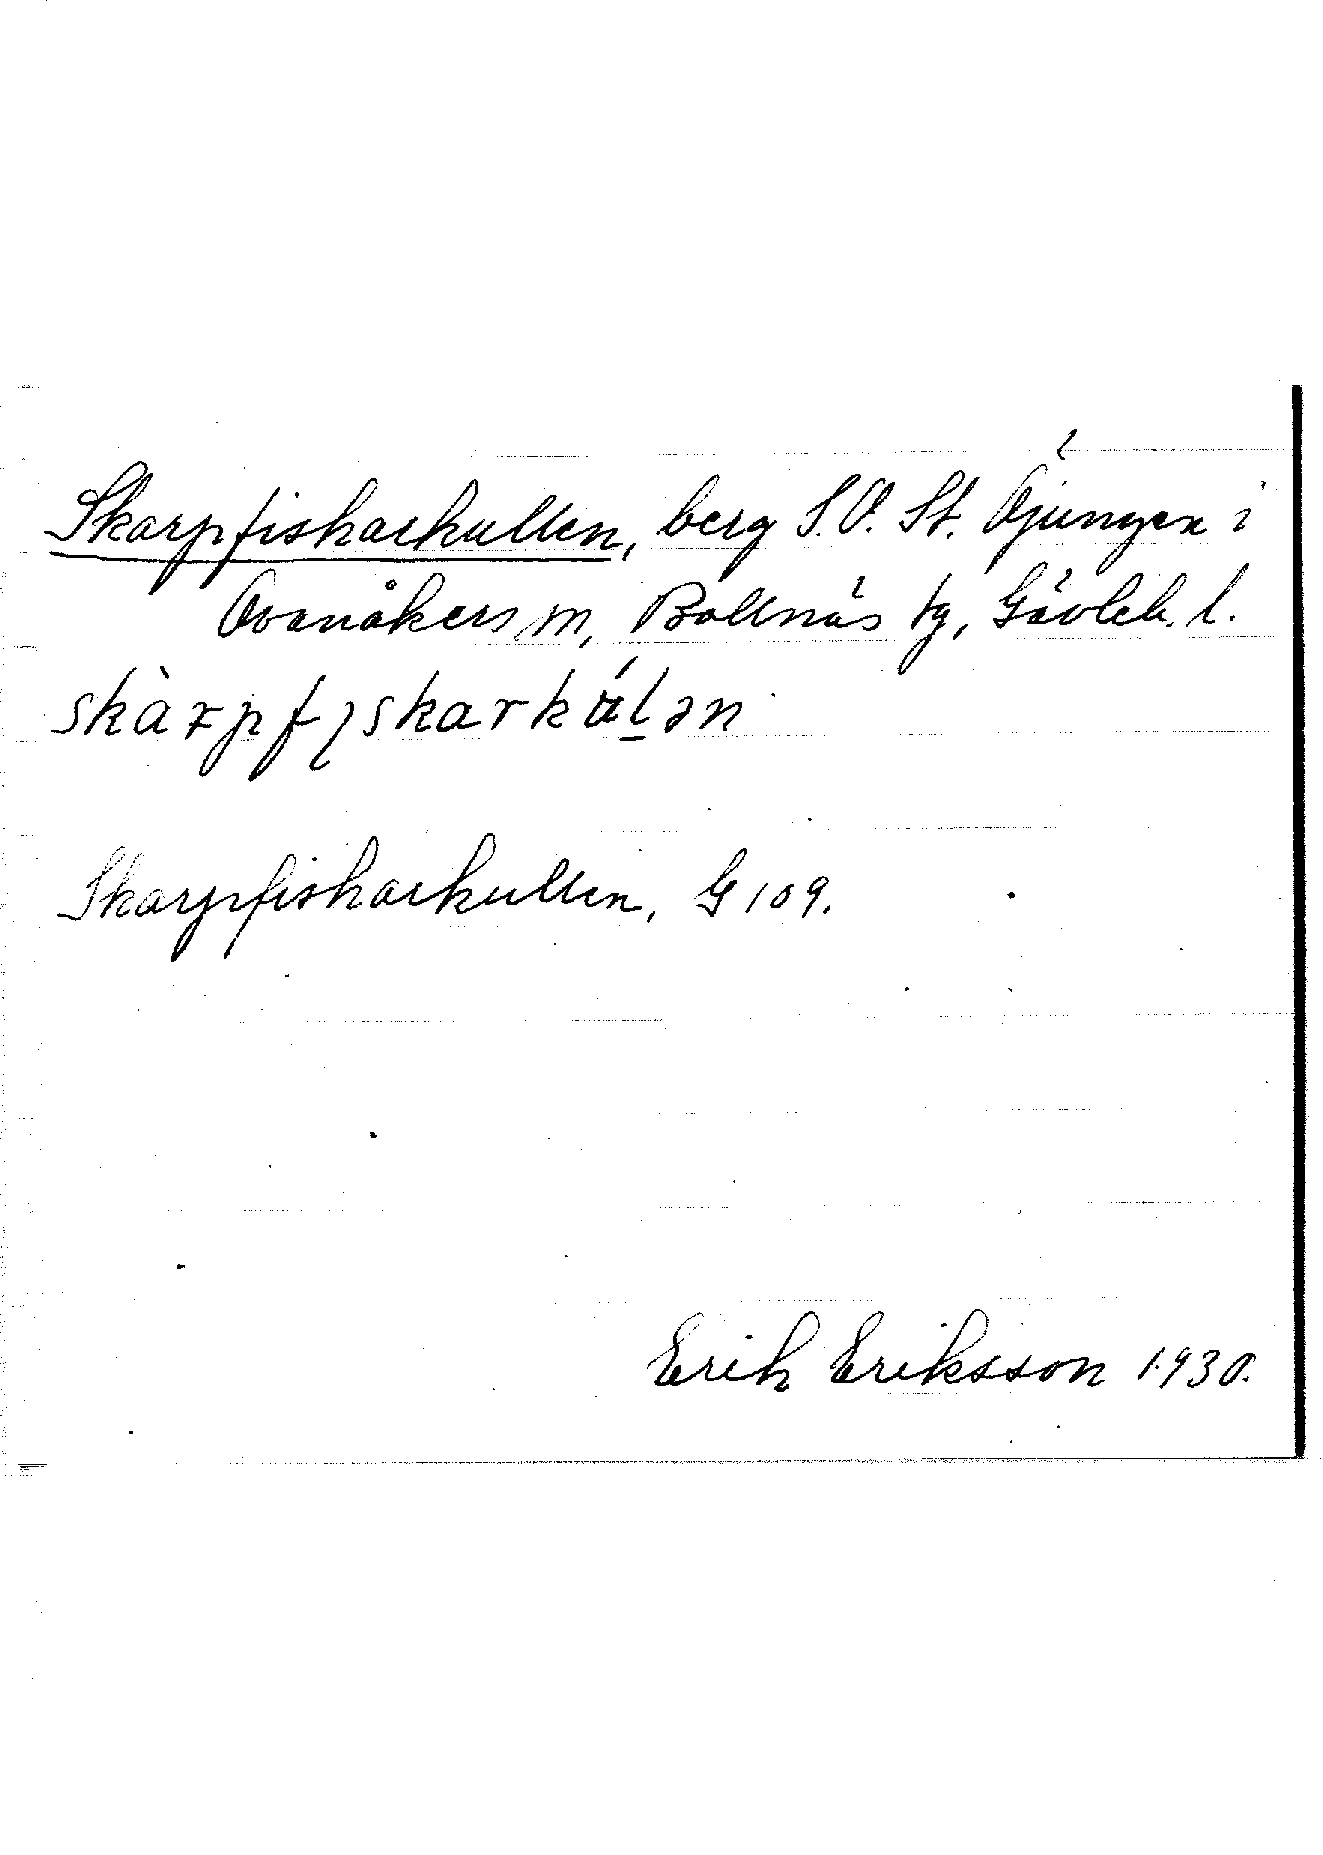 Skarpfiskarkullen, berg S.O. St. Öjungen i
Ovanåkers sn, Bollnäs tg, Gävleb. l.
skàrpfıskarkúlən
Skarpfiskarkullen, G 109.
Erik Eriksson 1930.